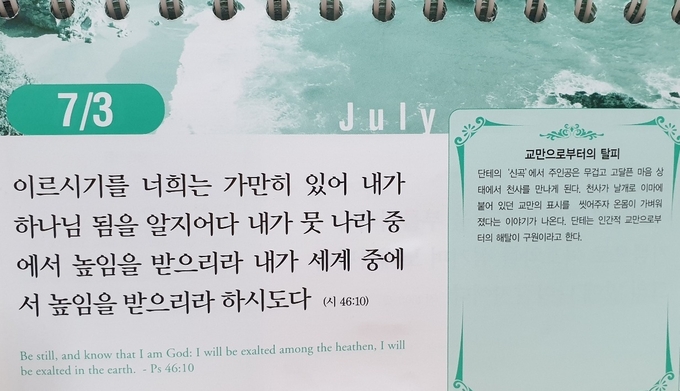 7/3
July
이르시기를 너희는 가만히 있어 내가
하나님 됨을 알지어다 내가 뭇 나라 중
에서 높임을 받으리라 내가 세계 중에
서 높임을 받으리라 하시도다 (시 46:10)
Be still, and know that I am God: I will be exalted among the heathen, I will
be exalted in the earth. - Ps 46:10
교만으로부터의 탈피
단테의 '신곡'에서 주인공은 무겁고 고달픈 마음 상
태에서 천사를 만나게 된다. 천사가 날개로 이마에
붙어 있던 교만의 표시를 씻어주자 온몸이 가벼워
졌다는 이야기가 나온다. 단테는 인간적 교만으로부
터의 해탈이 구원이라고 한다.